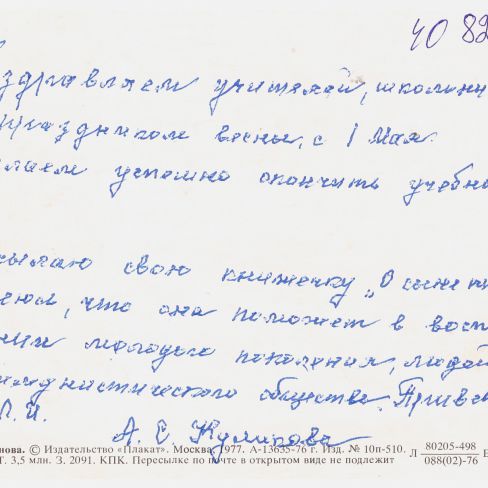 40 82
здравляем учителей, школьни
праздником весны, с 1 Мая.
лаем успешно окончить учебн
сылаю свою книжечку „О сыне
что она поможет в восп
молодого поколения, людей
мунистического общества. Привет
Л. И.
А. Е. Куликова
нова. © Издательство «Плакат». Москва, 1977. А-13635-76 г. Изд. № 10п-510.
Т. 3,5 млн. З. 2091. КПК. Пересылке по почте в открытом виде не подлежит
Л 80205-498
088(02)-76 Б